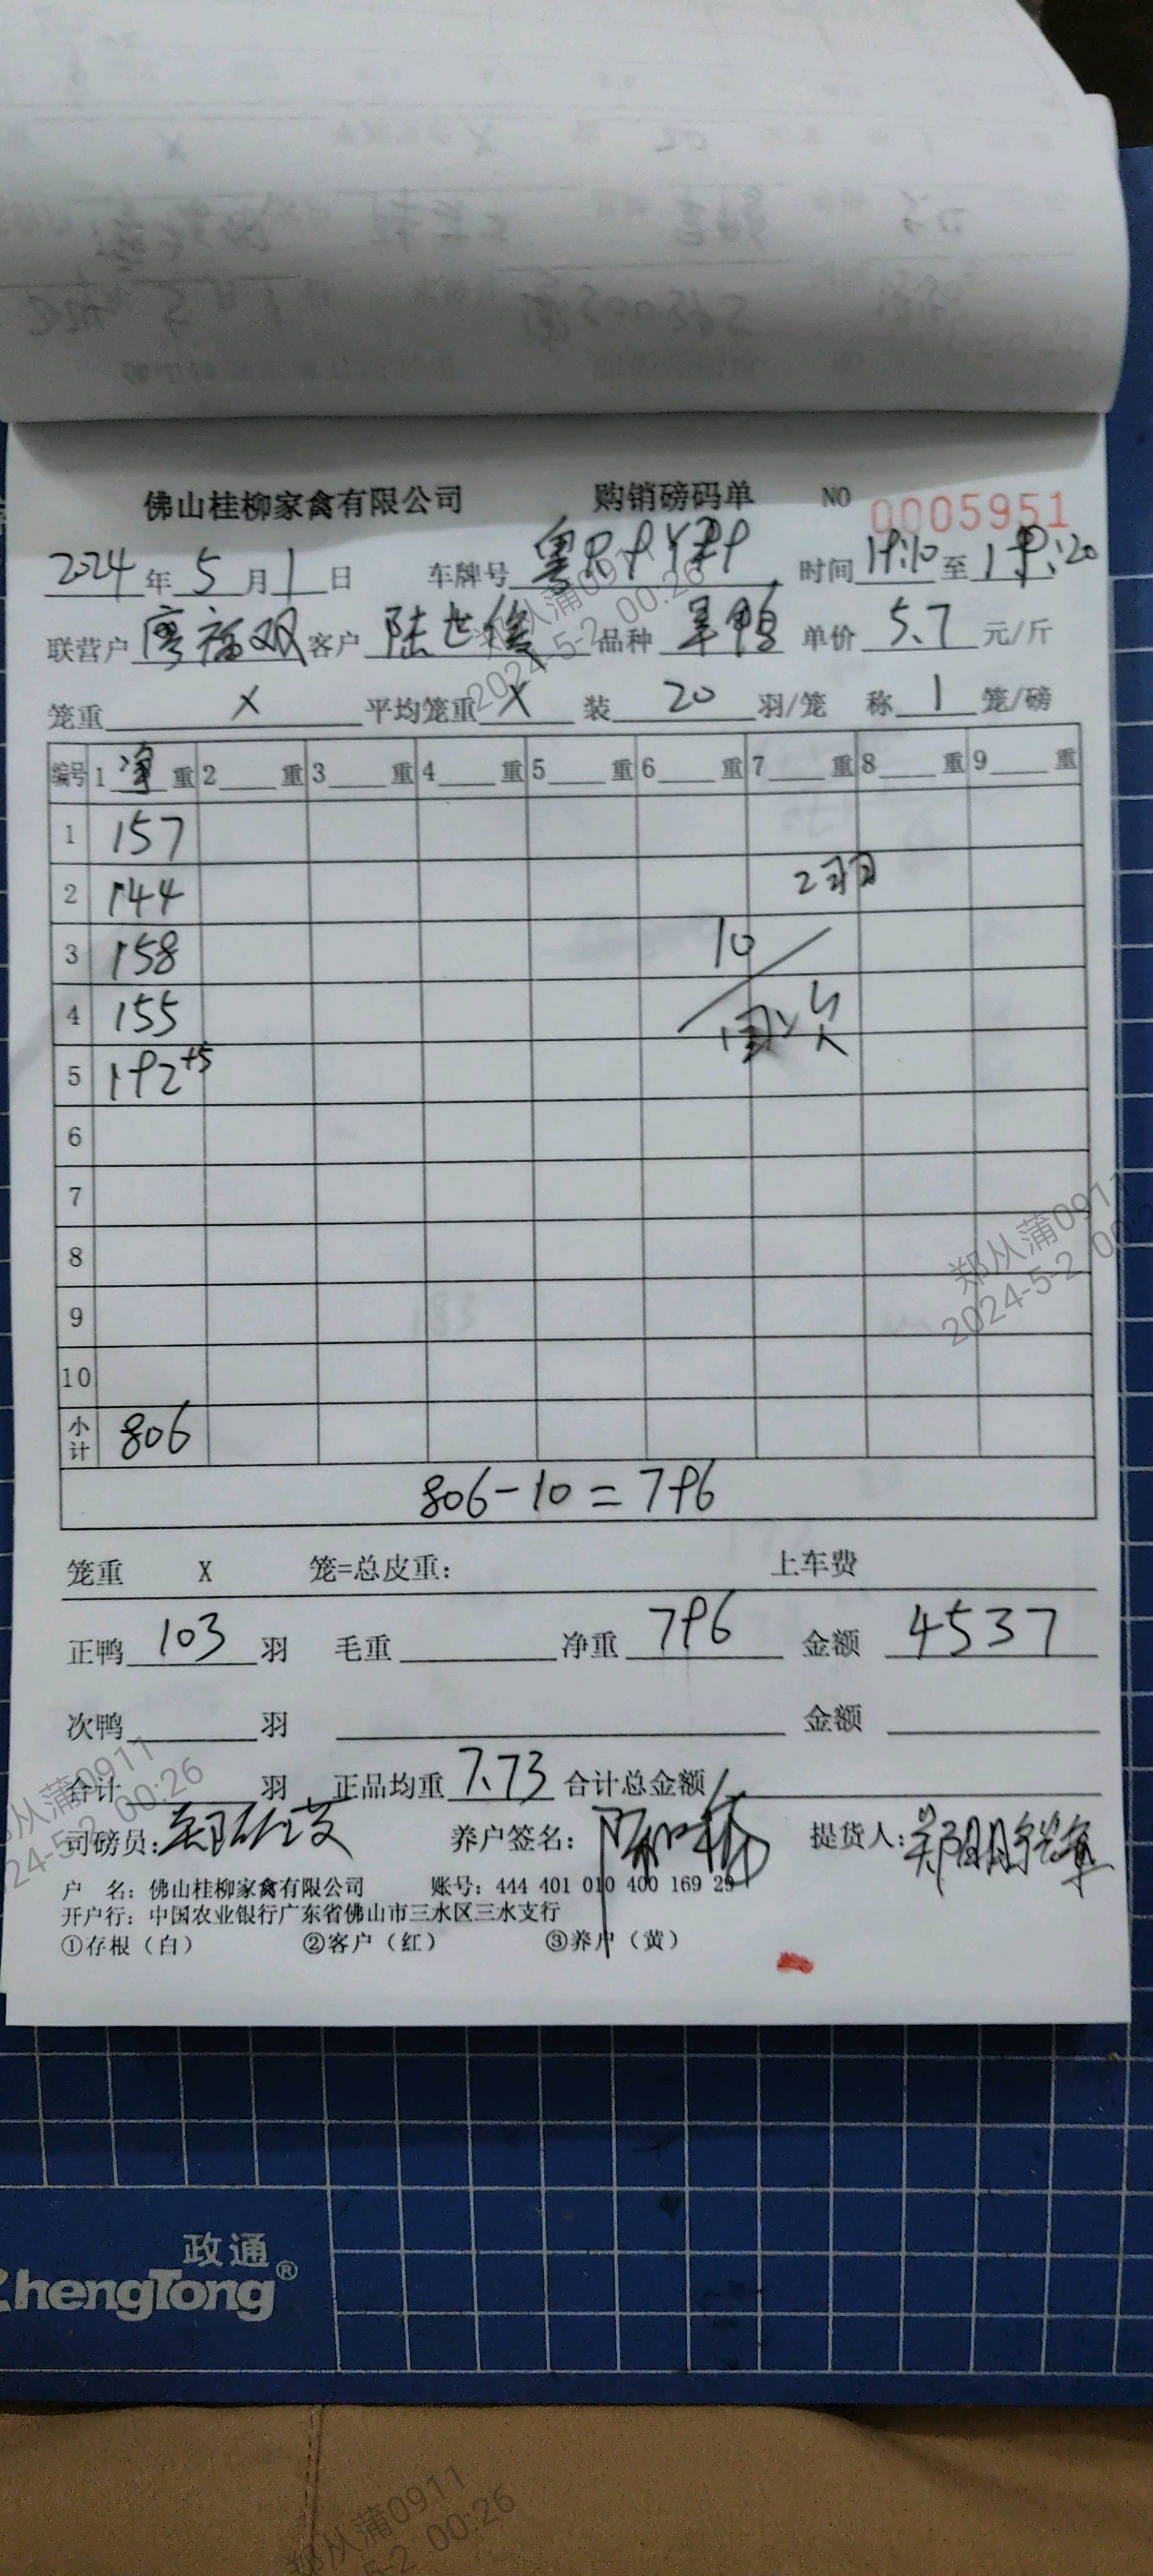 佛山桂柳家禽有限公司 购销磅码单 NO 0005951
2024年5月1日 车牌号 时间19:10至19:20
联营户廖福双客户陆世俊品种单价5.7元/斤
笼重X平均笼重X装20羽/笼 称1笼/磅
编号 1净重 2重 3重 4重 5重 6重 7重 8重 9重
1 157
2 144 2羽
3 158 10
4 155
5 192+5
6
7
8
9
10
小计 806
806-10=796
笼重 X 笼=总皮重: 上车费
正鸭103羽 毛重 净重796 金额4537
次鸭 羽 金额
合计 羽 正品均重7.73 合计总金额
司磅员: 养户签名: 提货人:
户 名: 佛山桂柳家禽有限公司 账号: 444 401 010 400 169 29
开户行: 中国农业银行广东省佛山市三水区三水支行
①存根(白) ②客户(红) ③养户(黄)
政通®
ZhengTong
郑从蒲0911
2024-5-2 00:26
郑从蒲0911
2024-5-2 00:2
从蒲0911
24-5-2 00:26
郑从蒲0911
5-2 00:26